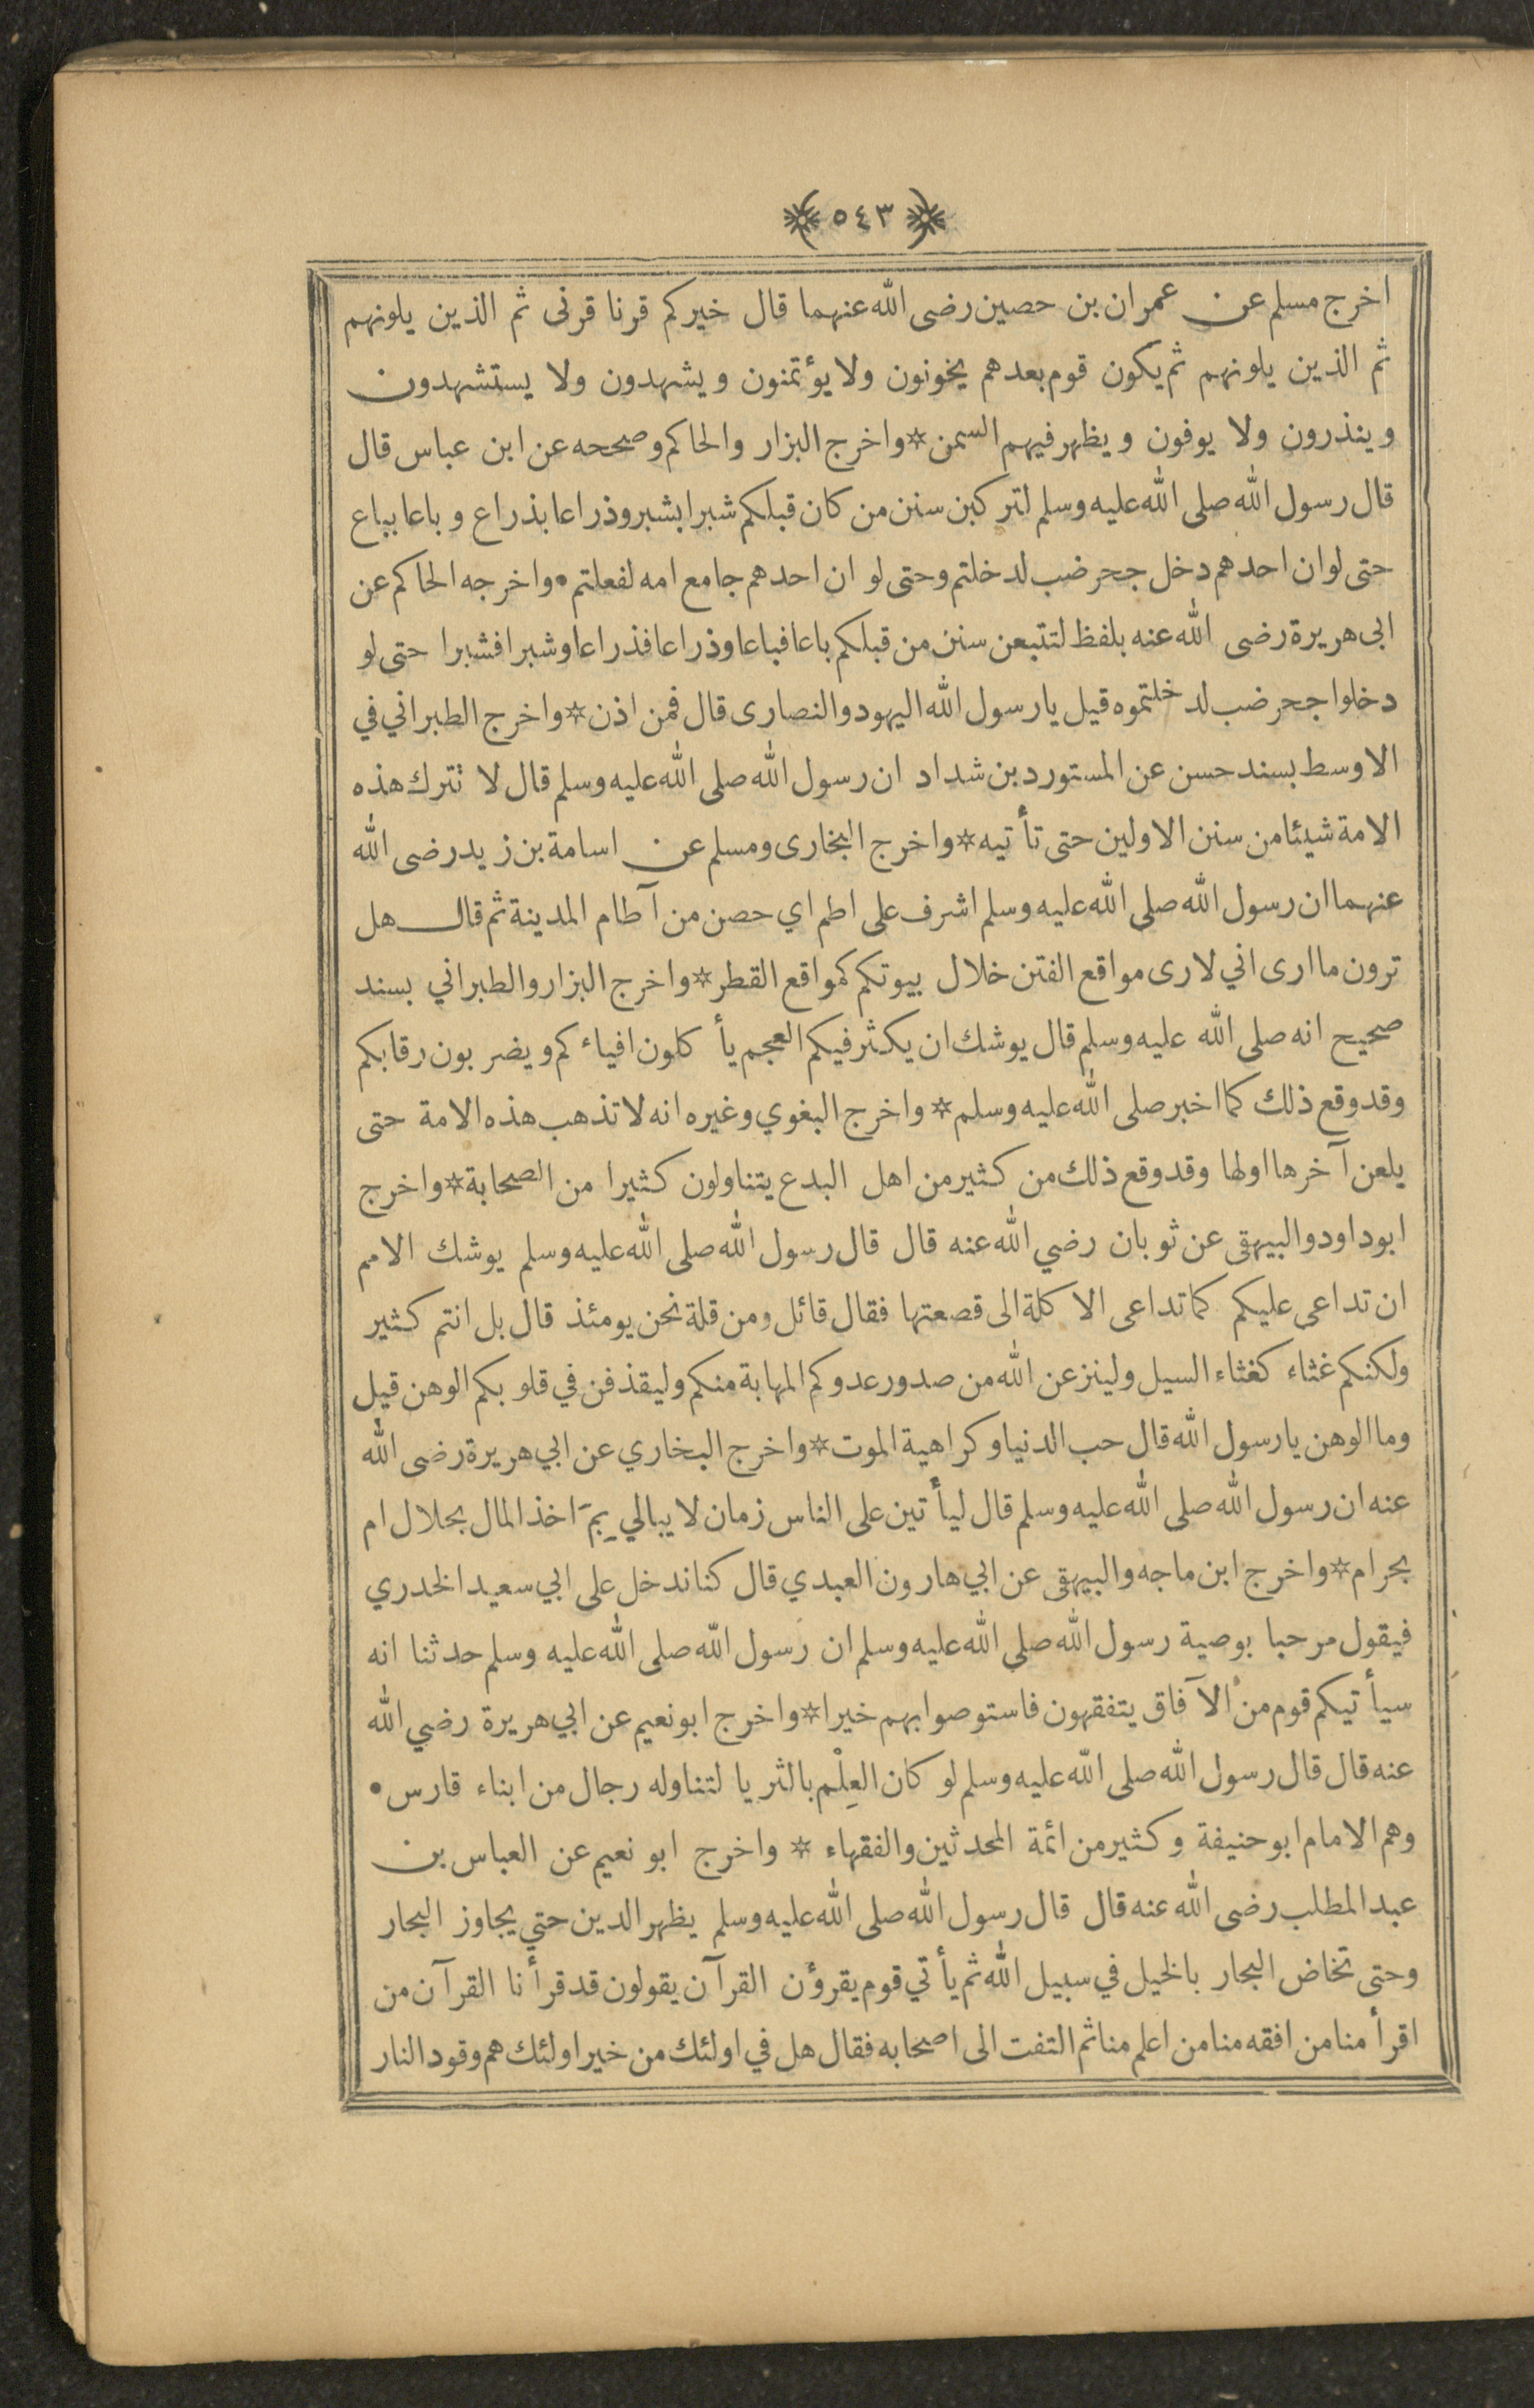 ٥٤٣
اخرج مسلم عن عمران بن حصين رضى الله عنهما قال خيركم قرنا قرنى ثم الذين يلونهم
ثم الذين يلونهم ثم يكون قوم بعدهم يخونون ولا يؤتمنون ويشهدون ولا يستشهدون
وينذرون ولا يوفون ويظهر فيهم السمن * واخرج البزار والحاكم وصححه عن ابن عباس قال
قال رسول الله صلى الله عليه وسلم لتركبن سنن من كان قبلكم شبرا بشبر وذراعا بذراع وباعا بباع
حتى لو ان احدهم دخل جحر ضب لدخلتم وحتى لو ان احدهم جامع امه لفعلتم • واخرجه الحاكم عن
ابى هريرة رضى الله عنه بلفظ لتتبعن سنن من قبلكم باعا فباعا وذراعا فذراعا وشبرا فشبرا حتى لو
دخلوا جحر ضب لدخلتموه قيل يا رسول الله اليهود والنصارى قال فمن اذن * واخرج الطبراني في
الاوسط بسند حسن عن المستورد بن شداد ان رسول الله صلى الله عليه وسلم قال لا تترك هذه
الامة شيئا من سنن الاولين حتى تأتيه * واخرج البخارى ومسلم عن اسامة بن زيد رضى الله
عنهما ان رسول الله صلى الله عليه وسلم اشرف على اطم اي حصن من آطام المدينة ثم قال هل
ترون ما ارى اني لارى مواقع الفتن خلال بيوتكم كمواقع القطر * واخرج البزار والطبراني بسند
صحيح انه صلى الله عليه وسلم قال يوشك ان يكثر فيكم العجم يأكلون افياءكم ويضربون رقابكم
وقد وقع ذلك كما اخبر صلى الله عليه وسلم * واخرج البغوي وغيره انه لا تذهب هذه الامة حتى
يلعن آخرها اولها وقد وقع ذلك من كثير من اهل البدع يتناولون كثيرا من الصحابة * واخرج
ابو داود والبيهقى عن ثوبان رضي الله عنه قال قال رسول الله صلى الله عليه وسلم يوشك الامم
ان تداعى عليكم كما تداعى الاكلة الى قصعتها فقال قائل ومن قلة نحن يومئذ قال بل انتم كثير
ولكنكم غثاء كغثاء السيل ولينزعن الله من صدور عدوكم المهابة منكم وليقذفن في قلوبكم الوهن قيل
وما الوهن يا رسول الله قال حب الدنيا وكراهية الموت * واخرج البخاري عن ابي هريرة رضى الله
عنه ان رسول الله صلى الله عليه وسلم قال ليأتين على الناس زمان لا يبالي بِمَ اخذ المال بحلال ام
بحرام * واخرج ابن ماجه والبيهقى عن ابي هارون العبدي قال كنا ندخل على ابي سعيد الخدري
فيقول مرحبا بوصية رسول الله صلى الله عليه وسلم ان رسول الله صلى الله عليه وسلم حدثنا انه
سيأتيكم قوم من الآفاق يتفقهون فاستوصوا بهم خيرا * واخرج ابو نعيم عن ابي هريرة رضي الله
عنه قال قال رسول الله صلى الله عليه وسلم لو كان العِلْم بالثريا لتناوله رجال من ابناء قارس •
وهم الامام ابو حنيفة وكثير من ائمة المحدثين والفقهاء * واخرج ابو نعيم عن العباس بن
عبد المطلب رضى الله عنه قال قال رسول الله صلى الله عليه وسلم يظهر الدين حتي يجاوز البحار
وحتى تخاض البحار بالخيل في سبيل الله ثم يأتي قوم يقرؤن القرآن يقولون قد قرأنا القرآن من
اقرأ منا من افقه منا من اعلم منا ثم التفت الى اصحابه فقال هل في اولئك من خير اولئك هم وقود النار